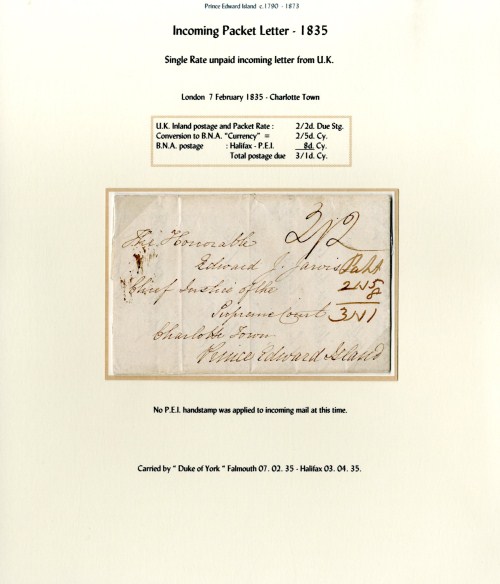 Prince Edward Island c.1790 - 1873
Incoming Packet Letter - 1835
Single Rate unpaid incoming letter from U.K.
London 7 February 1835 - Charlotte Town
U.K. Inland postage and Packet Rate : 2/2d. Due Stg.
Conversion to B.N.A. "Currency" = 2/5d. Cy.
B.N.A. postage : Halifax - P.E.I. 8d. Cy.
Total postage due 3/1d. Cy.
2/2
The Honorable
Edward J. Jarvis
Chief Justice of the 2/5
8
Supreme Court 3/1
Charlotte Town
Prince Edward Island
No P.E.I. handstamp was applied to incoming mail at this time.
Carried by " Duke of York " Falmouth 07. 02. 35 - Halifax 03. 04. 35.